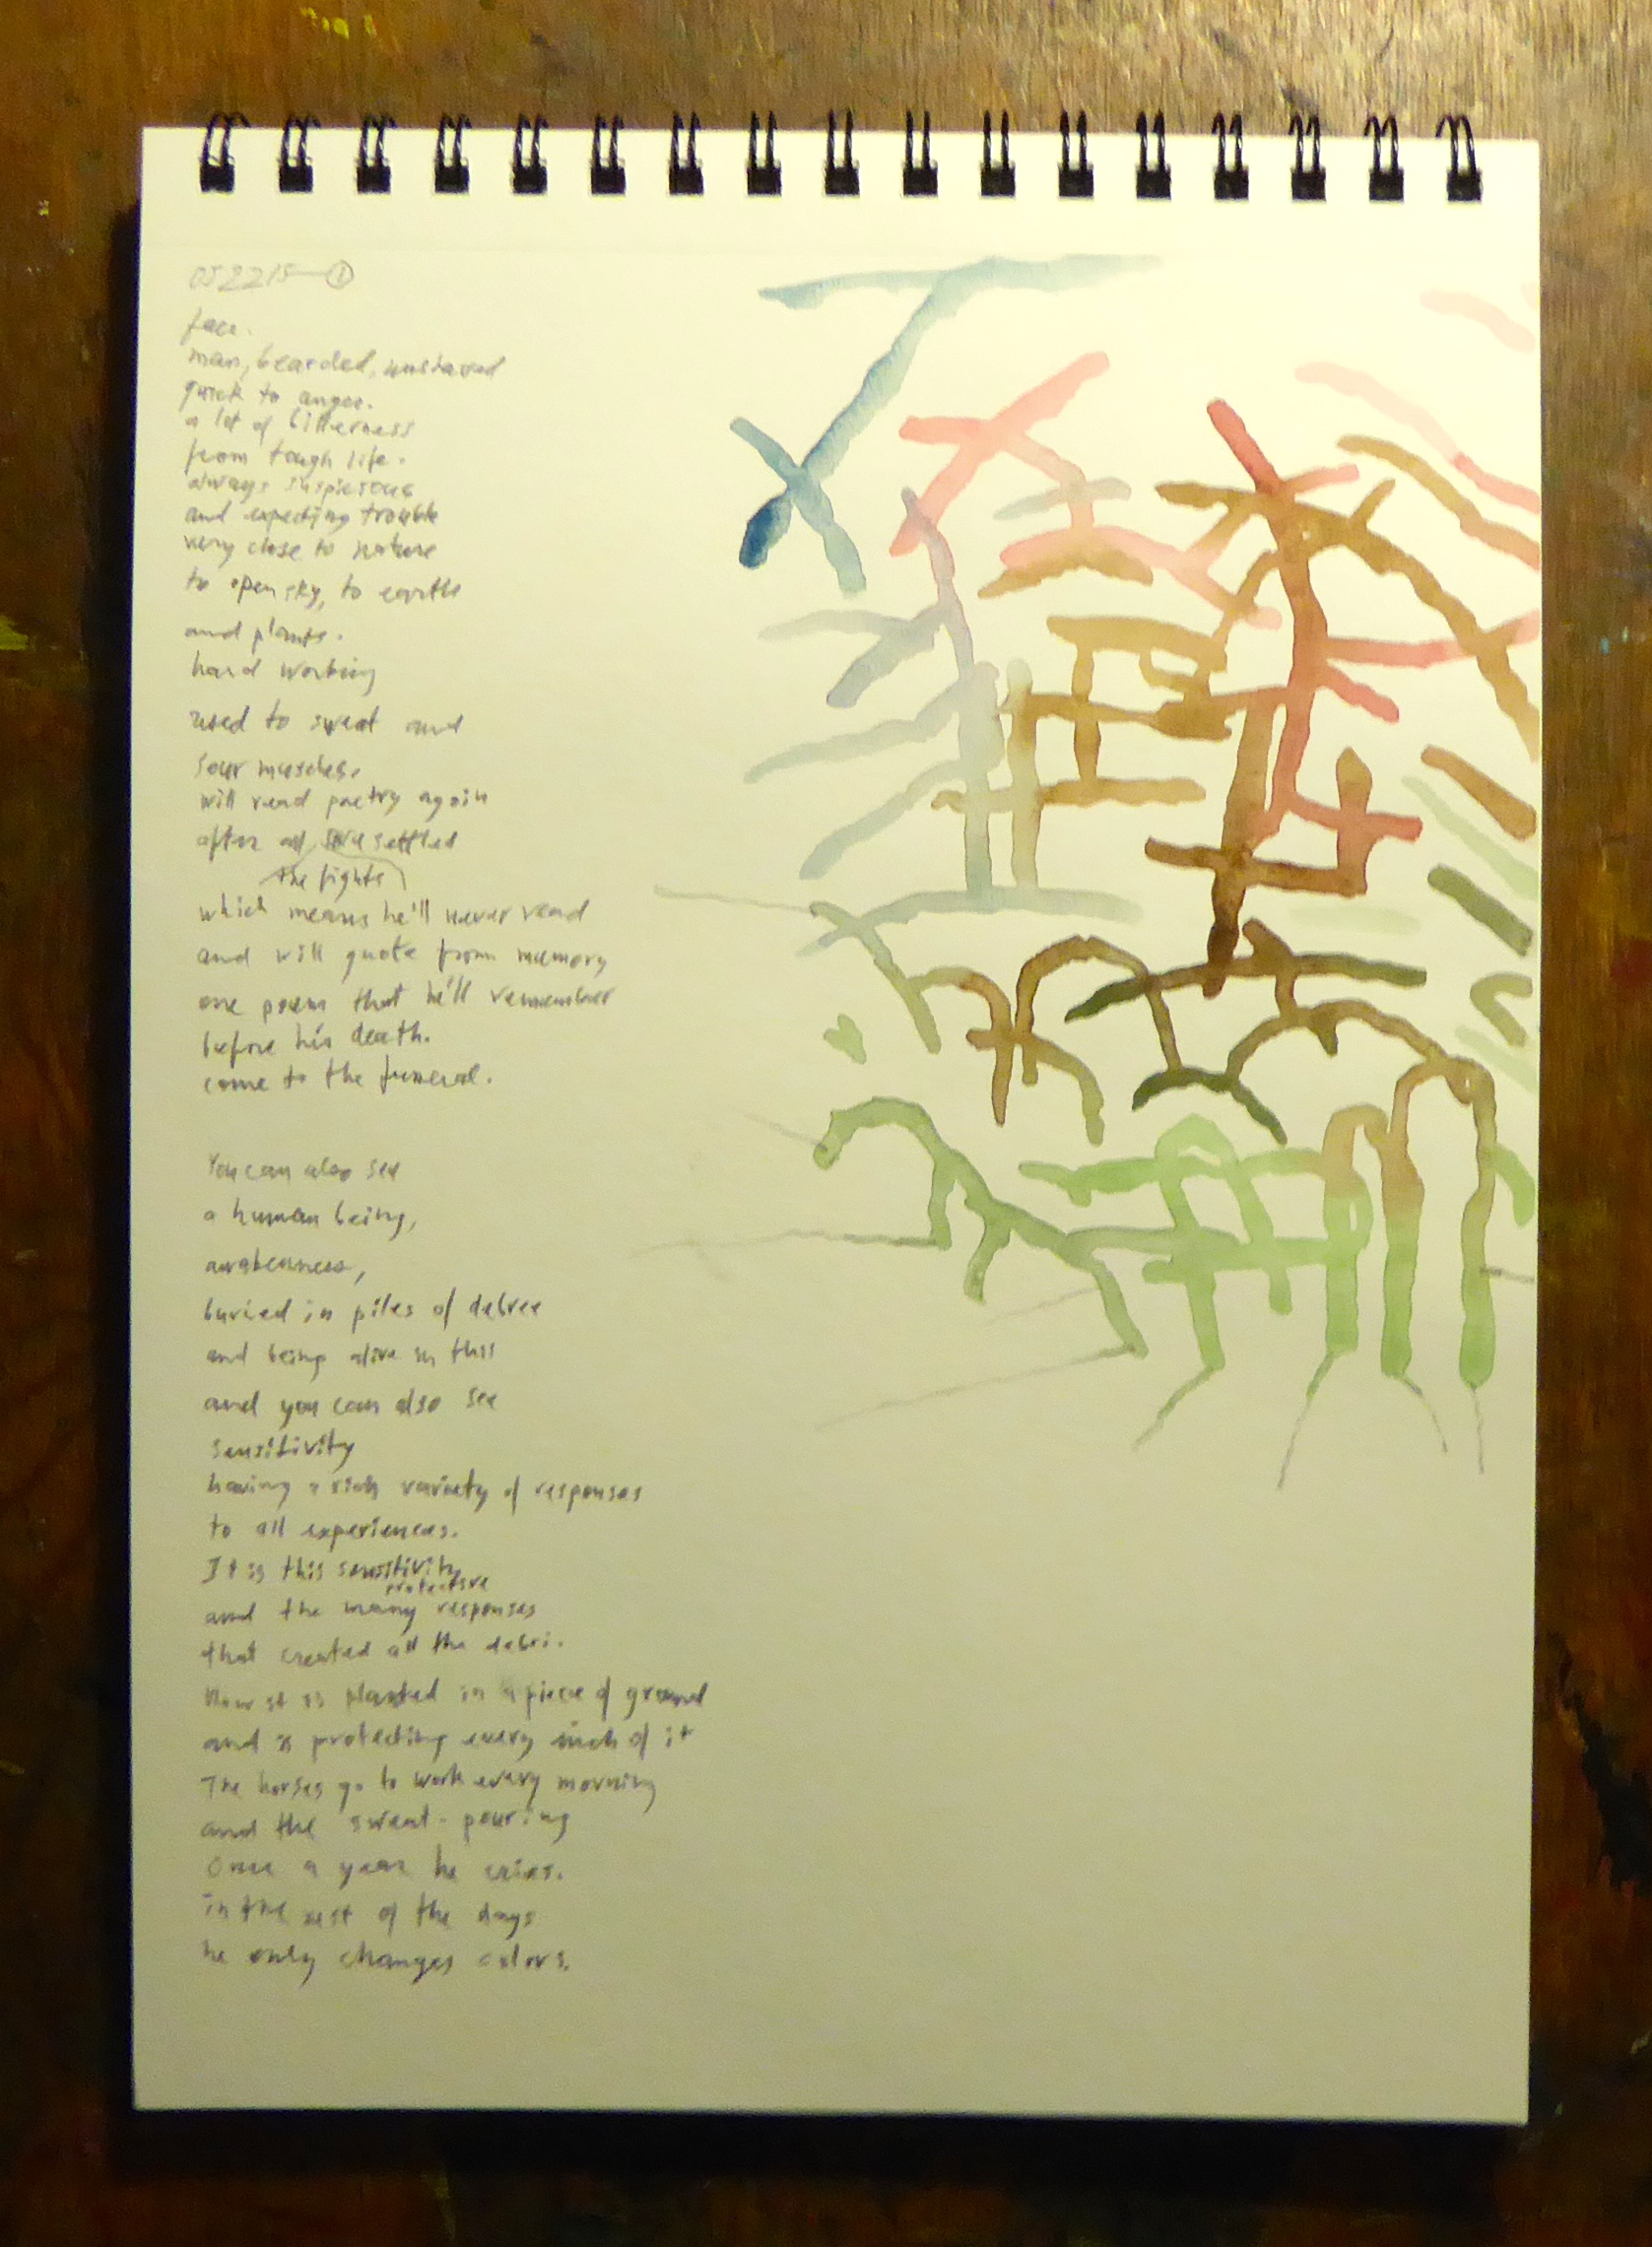 052215 — ①
face.
man, bearded, unshaved
quick to anger.
a lot of bitterness
from tough life.
always suspicious
and expecting trouble
very close to nature
to open sky, to earth
and plants.
hard working
used to sweat and
sour muscles.
will read poetry again
after all settled
the fights
which means he'll never read
and will quote from memory
one poem that he'll remember
before his death.
come to the funeral.
You can also see
a human being,
awakeness,
buried in piles of debree
and being alive in this
and you can also see
sensitivity
having a rich variety of responses
to all experiences.
It is this sensitivity
protective
and the many responses
that created all the debri.
Now it is planted in a piece of ground
and is protecting every inch of it
The horses go to work every morning
and the sweat - pouring
Once a year he cries.
in the rest of the days
he only changes colors.